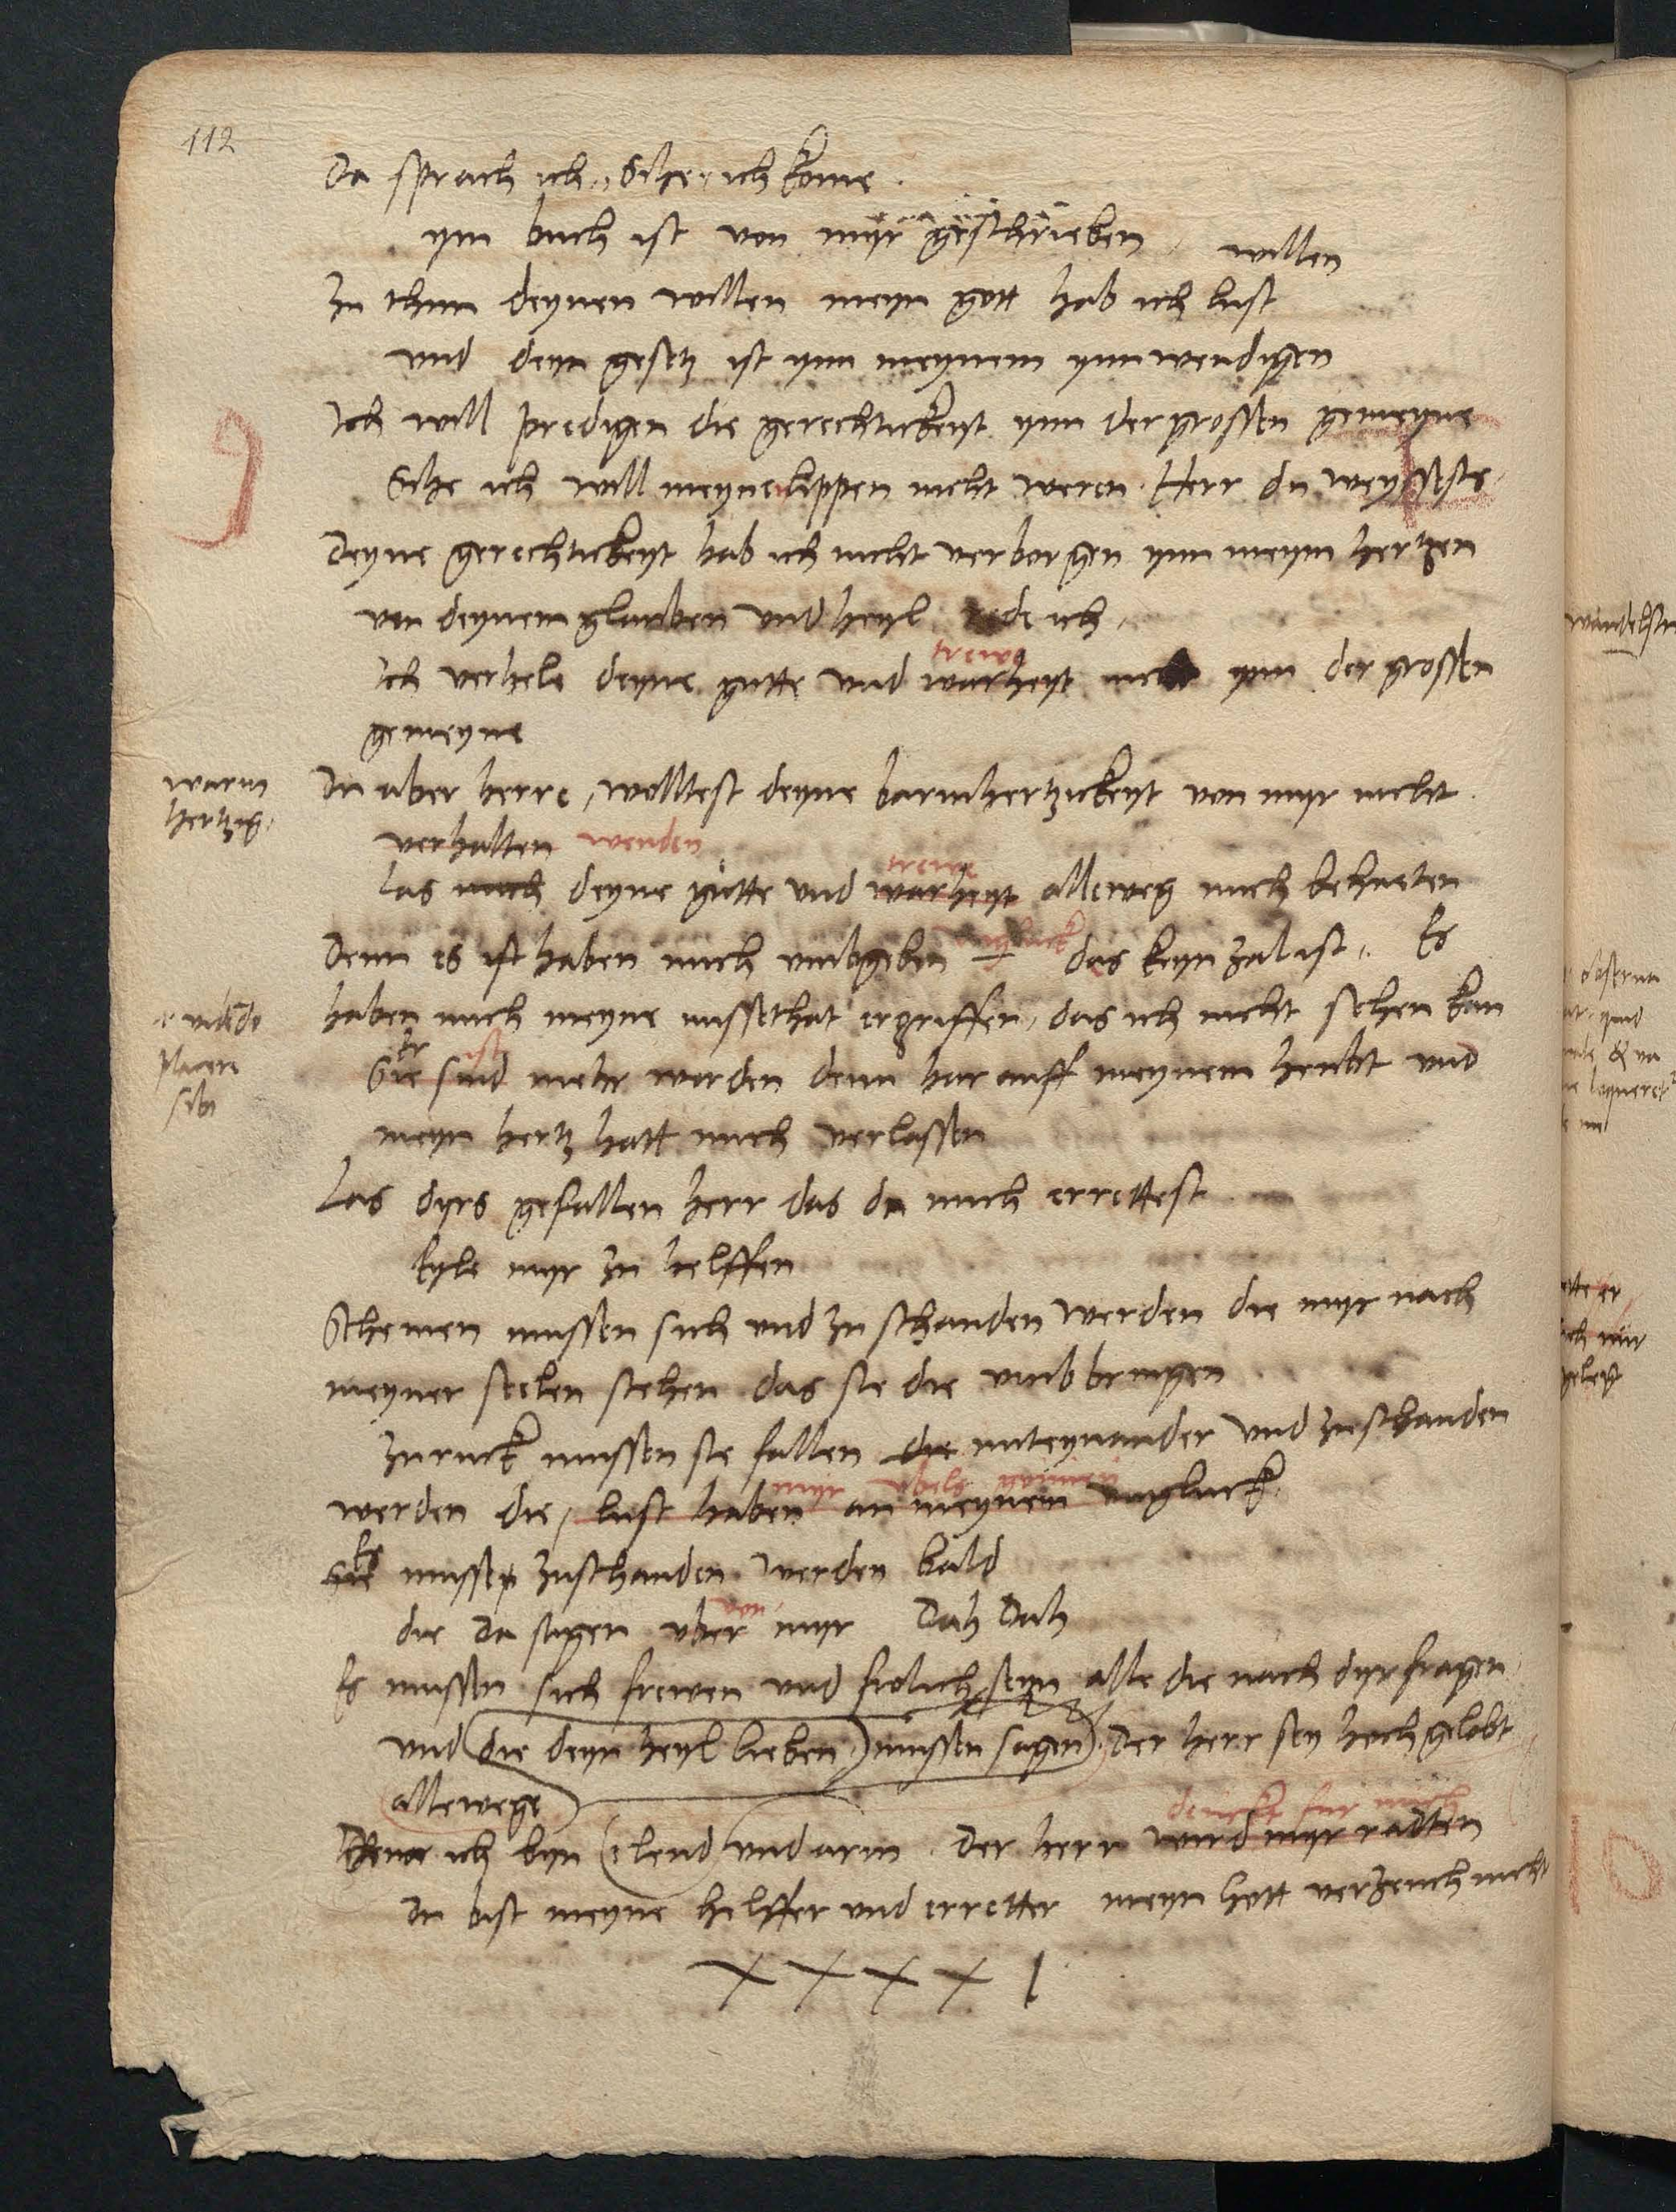 112
Da sprach ich, Sihe, ich kome.
ym buch ist von myr geschrieben
willen
Zu thun deynen willen meyn gott hab ich lust
und deyn gesetz ist ynn meynem ynnwendigen
Ich will predigen die gerechtickeyt ynn der grossen gemeyne
9
Sihe ich will meyne lippen nicht weren. Herr du weyssests
Deyne gerechtickeyt hab ich nicht verborgen ynn meym hertzen
von deynem glauben und heyl rede ich,
trew
Ich verhele deyne gutte und warheyt nicht ynn der grossen
gemeyne
warm
hertzig.
Du aber herre, wolltest deyne barmhertzickeyt von myr nicht
verhalten wenden
trew
Las mich deyne gutte und warheyt allweg mich behueten
Denn es ist haben mich umbgeben das keyn zal ist. Es
haben mich meyne missethat ergriffen, das ich nicht sehen kan
placere
sibi
Er ist
Sie sind mehr worden denn har auff meynem heubt und
meyn hertz hatt mich verlassen
Las dyrs gefallen herr das du mich errettest
Eyle myr zu helffen
Schemen mussen sich und zu schanden werden die myr nach
meyner seelen stehen das sie die umbbringen
Zuruck mussen sie fallen die miteynander und zuschanden
myr ubels gonnen
werden die, lust haben an meynem ungluck.
Es
Sie mussen zuschanden werden bald
die da sagen uber myr Dah Dah
Es mussen sich frewen und frolich seyn alle die nach dyr fragen
und die deyn heyl lieben, mussen sagen, Der herr sey hoch gelobt
allewege
denckt fur mich
Denn ich byn elend und arm. Der herr wird myr radten
Du bist meyne helffer und erretter meyn gott verzeuch nicht
XXXXI
10